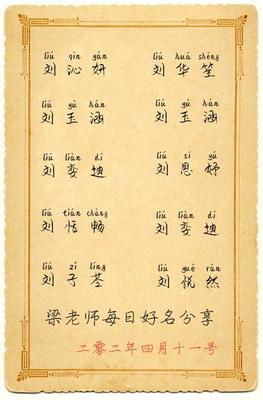 liú qìn yán liú huá shēng
刘 沁 妍 刘 华 笙
liú yù hán liú yù hán
刘 玉 涵 刘 玉 涵
liú liàn dí liú sī yú
刘 娈 迪 刘 思 妤
liú tián chàng liú liàn dí
刘 恬 畅 刘 娈 迪
liú zǐ líng liú yuè rán
刘 子 苓 刘 悦 然
梁老师每日好名分享
二零二年四月十一号